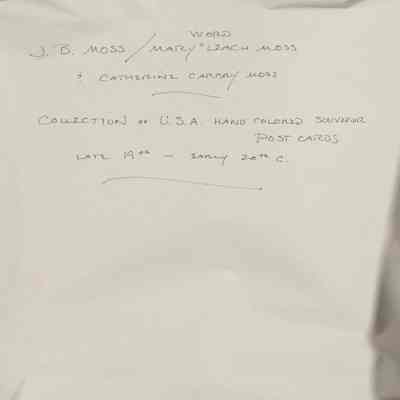 WORD
J. B. MOSS / MARY ^ LEACH MOSS
& CATHERINE CARRAY MOSS
COLLECTION OF U.S.A. HAND COLORED SOUVENIR
POST CARDS
LATE 19TH – EARLY 20TH C.